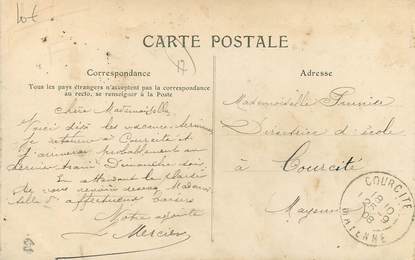 Lot
CARTE POSTALE
17
Correspondance
Tous les pays étrangers n'acceptent pas la correspondance
au recto, se renseigner à la Poste
Adresse
Chère Mademoiselle
Voici déjà les vacances terminées
je retourne à Courcité et
j'arriverai probablement au
dernier train Dimanche soir.
En attendant le plaisir
de vous revoir recevez Mademoi
selle d'affectueux baisers
Votre adjointe
Mercier
Mademoiselle
Directrice d'école
à Courcité
Mayenne
COURCITE
MAYENNE